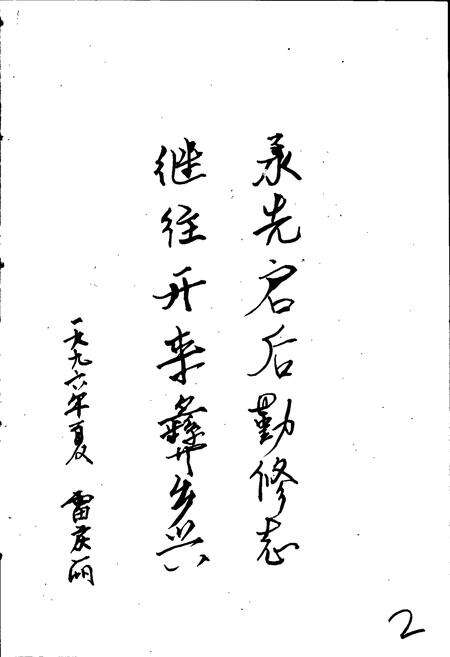 承先启后勤修志
继往开来彝兴
一九九六年夏 雷丽
2